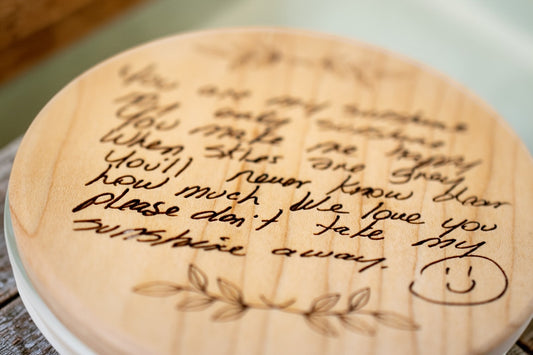 You are my sunshine
My only sunshine
You make me happy
When skies are grey
You'll never know dear
how much We love you
please don't take my
sunshine away.